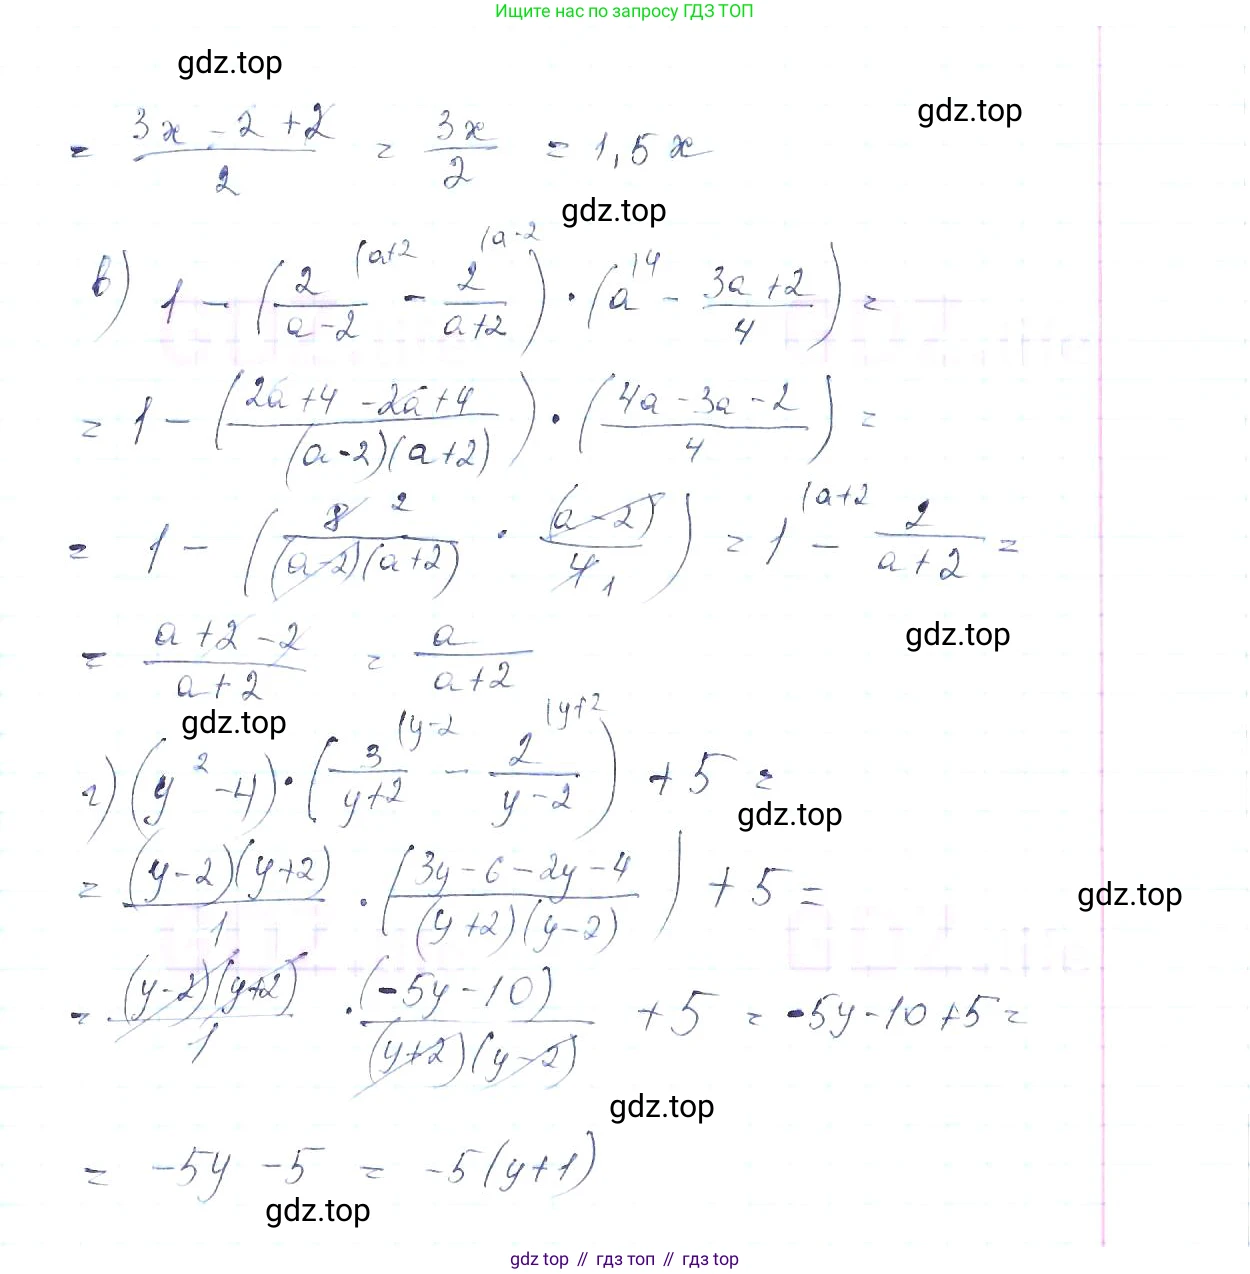 Ищите нас по запросу ГДЗ ТОП
gdz.top
gdz.top
= (3x - 2 + 2)/2 = 3x/2 = 1,5x
gdz.top
в) 1 - (2/(a-2) (a+2 - 2/(a+2) (a-2) · (a )4 - (3a+2)/4) =
= 1 - ((2a+4-2a+4)/((a-2)(a+2))) · ((4a-3a-2)/4) =
= 1 - (8 2/((a-2)(a+2)) · (a-2)/4 1) = 1 (a+2 - 2/(a+2) =
gdz.top
= (a+2-2)/(a+2) = a/(a+2)
gdz.top
г) (y²-4) · (3/(y+2) (y-2 - 2/(y-2) (y+2) + 5 =
gdz.top
= (y-2)(y+2)/1 · ((3y-6-2y-4)/((y+2)(y-2))) + 5 =
gdz.top
= (y-2)(y+2)/1 · (-5y-10)/((y+2)(y-2)) + 5 = -5y-10+5 =
gdz.top
= -5y - 5 = -5(y+1)
gdz.top
gdz top // гдз топ // gdz top